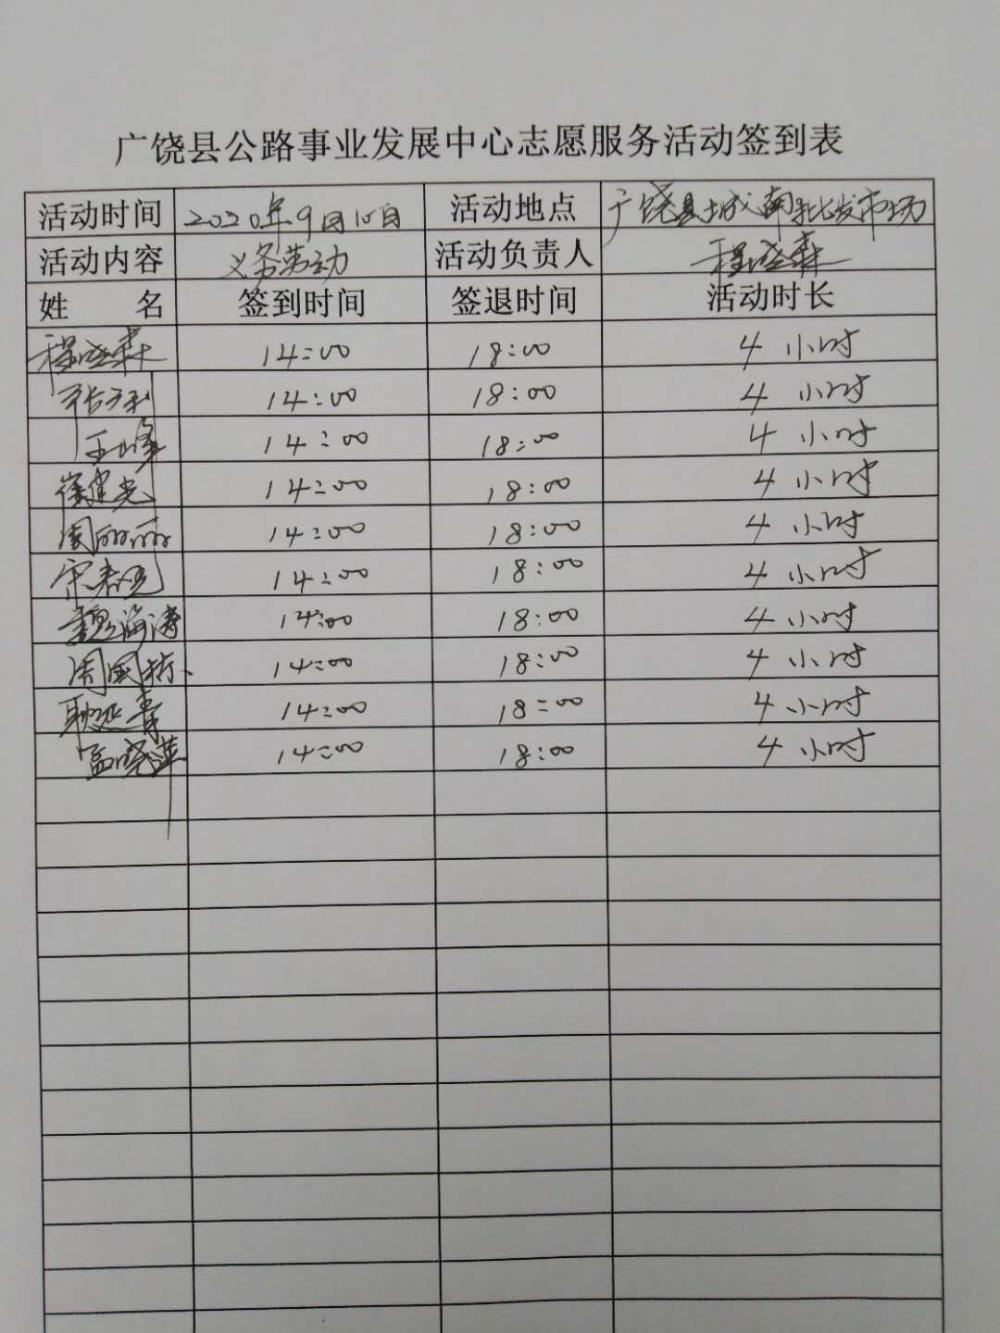 广饶县公路事业发展中心志愿服务活动签到表
活动时间 2020年9月10日 活动地点 广饶县城南批发市场
活动内容 义务劳动 活动负责人 程盛森
姓 名 签到时间 签退时间 活动时长
程盛森 14:00 18:00 4 小时
14:00 18:00 4 小时
王峰 14:00 18:00 4 小时
崔建光 14:00 18:00 4 小时
周丽丽 14:00 18:00 4 小时
14:00 18:00 4 小时
魏海涛 14:00 18:00 4 小时
周国栋 14:00 18:00 4 小时
耿延青 14:00 18:00 4 小时
孟晓萍 14:00 18:00 4 小时